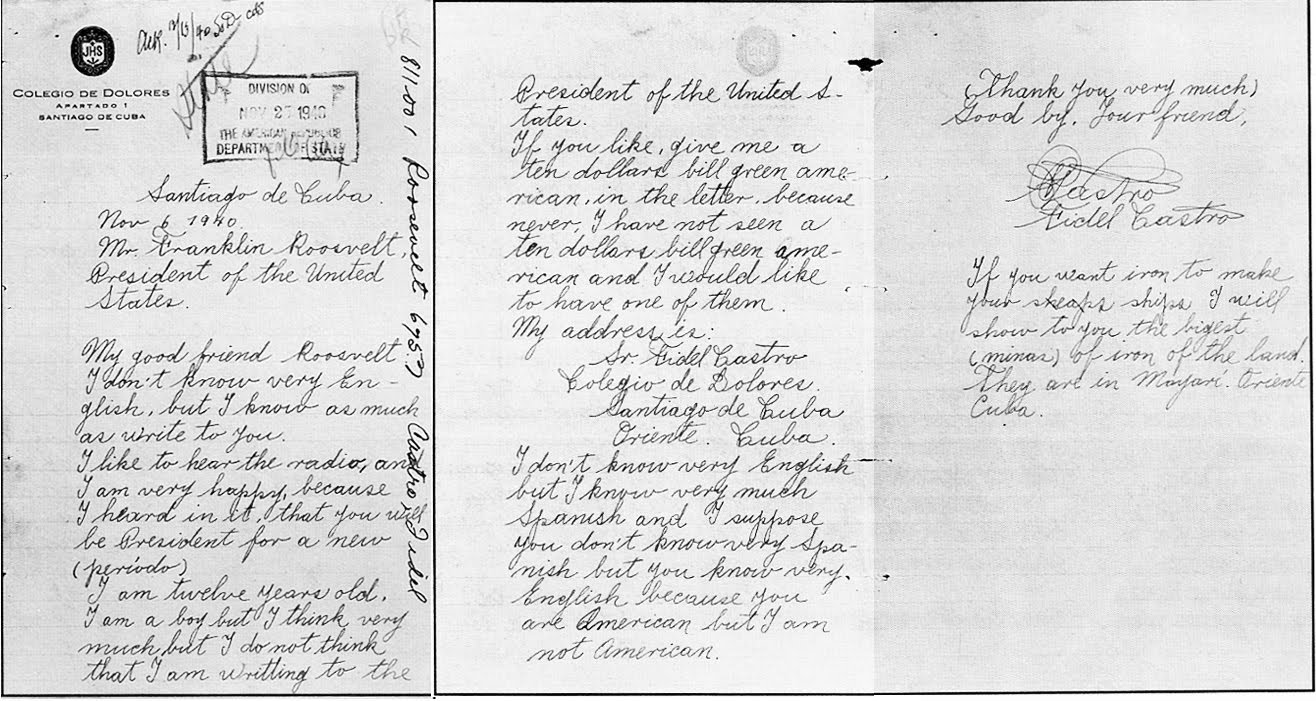 JHS
COLEGIO DE DOLORES
APARTADO 1
SANTIAGO DE CUBA
DIVISION OF
NOV 27 1940
THE AMERICAN REPUBLICS
DEPARTMENT OF STATE
811.001 Roosevelt 6957 Castro, Fidel
Santiago de Cuba.
Nov 6 1940.
Mr. Franklin Roosvelt,
President of the United
States.
My good friend Roosvelt
I don't know very En-
glish, but I know as much
as write to you.
I like to hear the radio, and
I am very happy, because
I heard in it, that you will
be President for a new
(periodo)
I am twelve years old.
I am a boy but I think very
much but I do not think
that I am writting to the
President of the United S-
tates.
If you like, give me a
ten dollars bill green ame-
rican, in the letter, because
never, I have not seen a
ten dollars bill green ame-
rican and I would like
to have one of them.
My address is:
Sr. Fidel Castro
Colegio de Dolores.
Santiago de Cuba
Oriente. Cuba.
I don't know very English
but I know very much
Spanish and I suppose
you don't know very Spa-
nish but you know very
English because you
are American but I am
not American.
(Thank you very much)
Good by. Your friend,
Castro
Fidel Castro
If you want iron to make
your sheaps ships I will
show to you the bigest
(minas) of iron of the land.
They are in Mayarí. Oriente
Cuba.